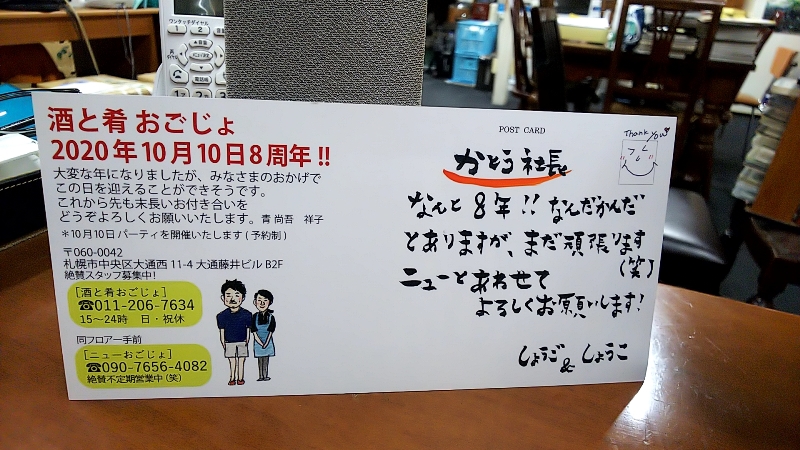 酒と肴 おごじょ
2020年10月10日8周年!!
大変な年になりましたが、みなさまのおかげで
この日を迎えることができそうです。
これから先も末長いお付き合いを
どうぞよろしくお願いいたします。青 尚吾 祥子
*10月10日パーティを開催いたします(予約制)
〒060-0042
札幌市中央区大通西 11-4 大通藤井ビル B2F
絶賛スタッフ募集中!
[酒と肴おごじょ]
☎011-206-7634
15〜24時 日・祝休
同フロアー手前
[ニューおごじょ]
☎090-7656-4082
絶賛不定期営業中(笑)
POST CARD
Thank You
かとう社長
なんと8年!! なんだかんだ
とありますが、まだ頑張ります
(笑)
ニューとあわせて
よろしくお願いします!
しょうご&しょうこ